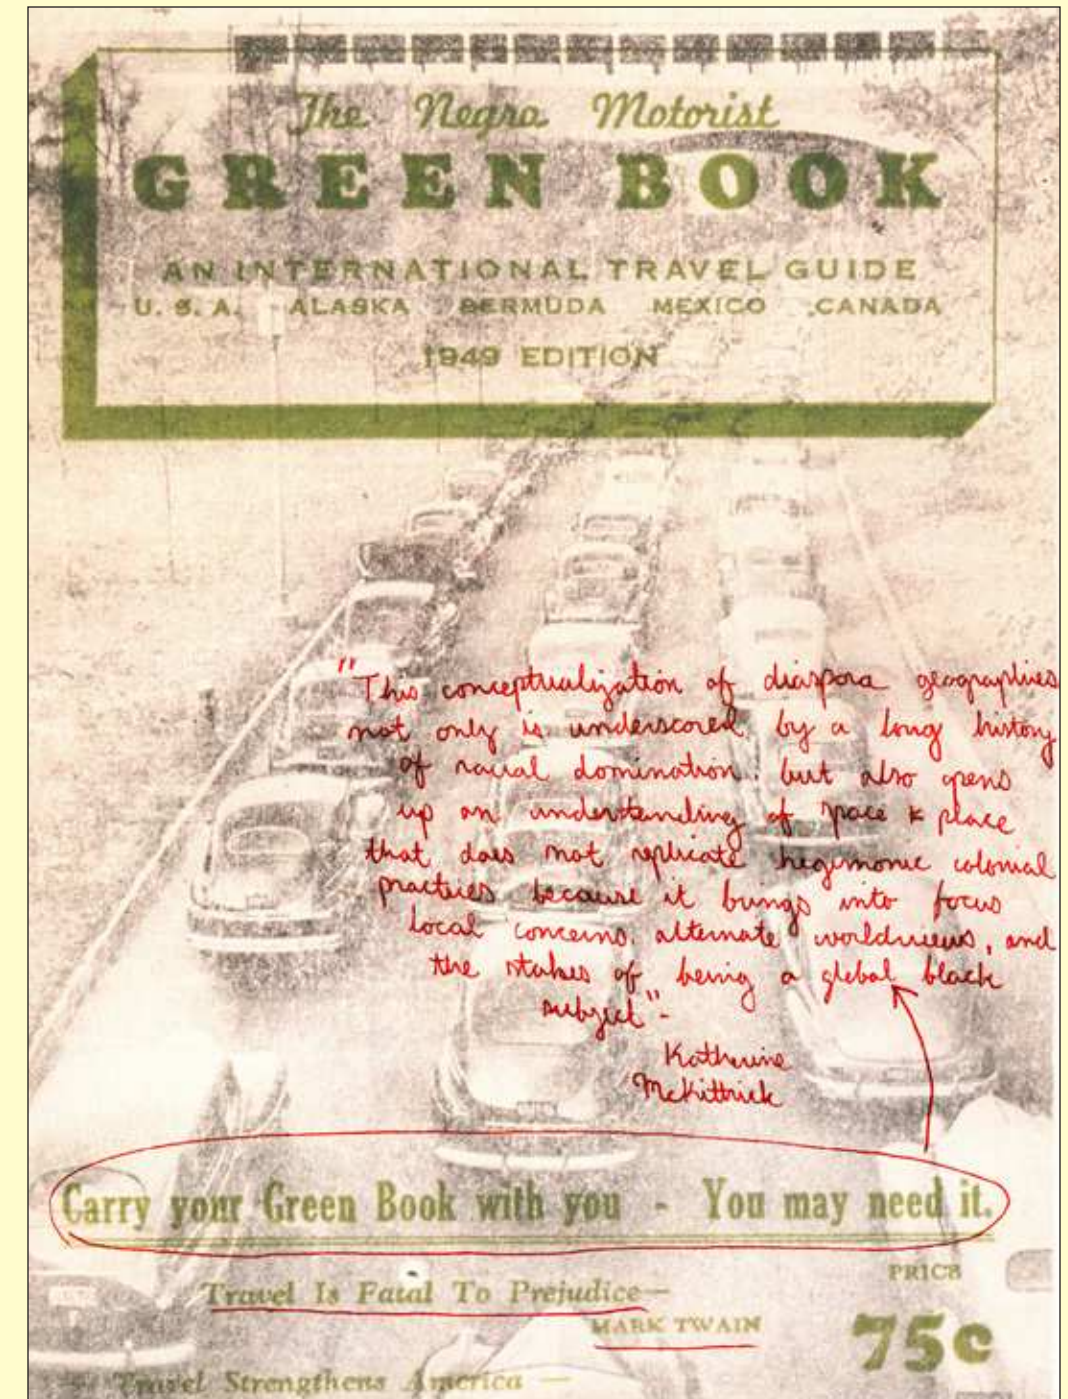 The Negro Motorist
GREEN BOOK
AN INTERNATIONAL TRAVEL GUIDE
U. S. A. ALASKA BERMUDA MEXICO CANADA
1949 EDITION
"This conceptualization of diaspora geographies
not only is underscored by a long history
of racial domination but also opens
up an understanding of space & place
that does not replicate hegemonic colonial
practices because it brings into focus
local concerns, alternate worldviews, and
the stakes of being a global black
subject"-
Katherine
McKittrick
Carry your Green Book with you - You may need it.
PRICE
Travel Is Fatal To Prejudice—
MARK TWAIN
75c
Travel Strengthens America —